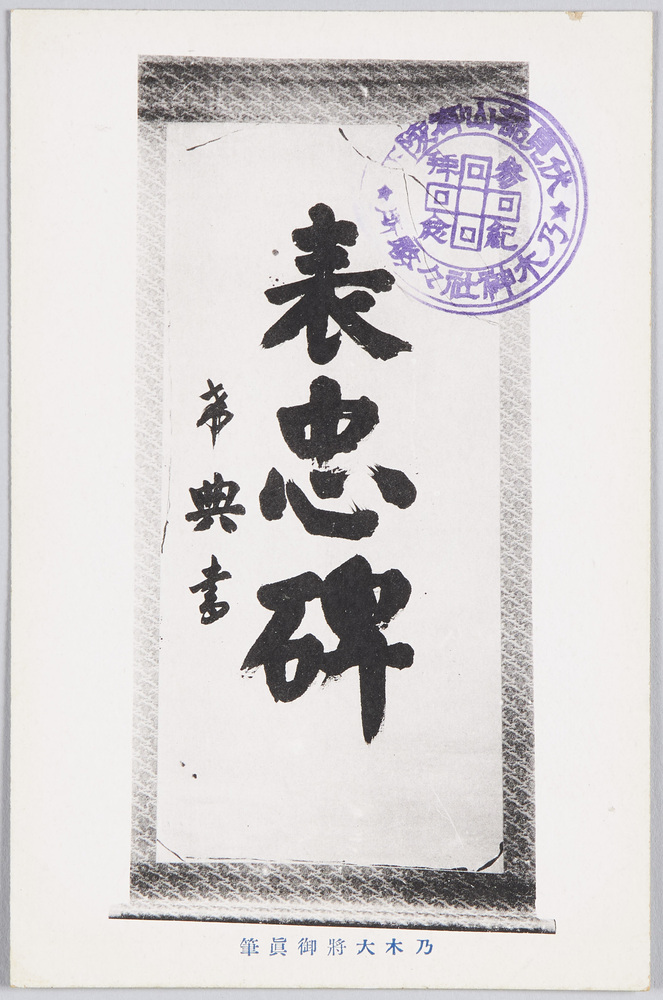 表忠碑
希典書
伏見桃山御陵
乃木神社々務所
参拝
紀念
乃木大將御眞筆